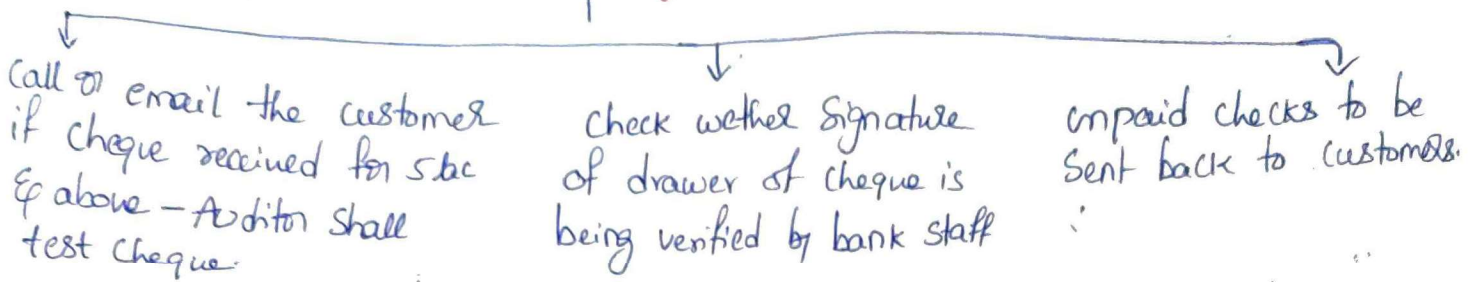 Call or email the customer
if cheque received for 5 lac
& above - Auditor shall
test cheque.
check wether Signature
of drawer of cheque is
being verified by bank staff
unpaid checks to be
Sent back to customers.